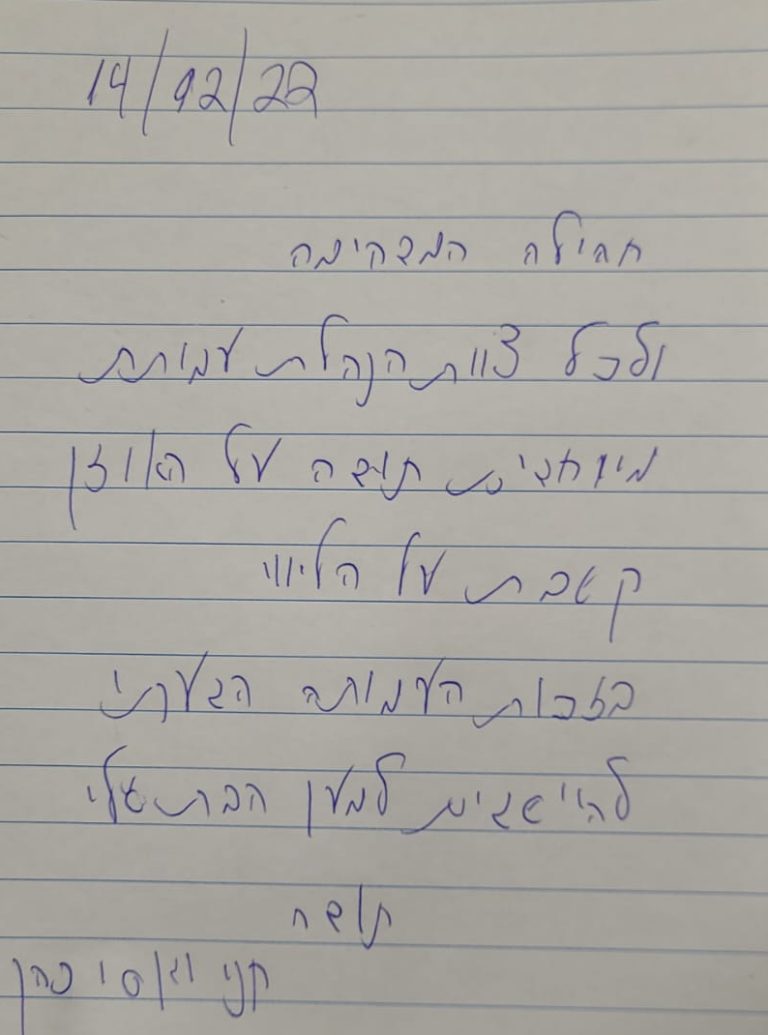 14/12/22
תהילה המדהימה
ולכל צוות הנהלת עמותת
מיוחדים תודה על האוזן
קשבת על הליווי
בזכות העמותה הגעתי
להישגים למען הבת שלי
תודה
חני ואסי כהן